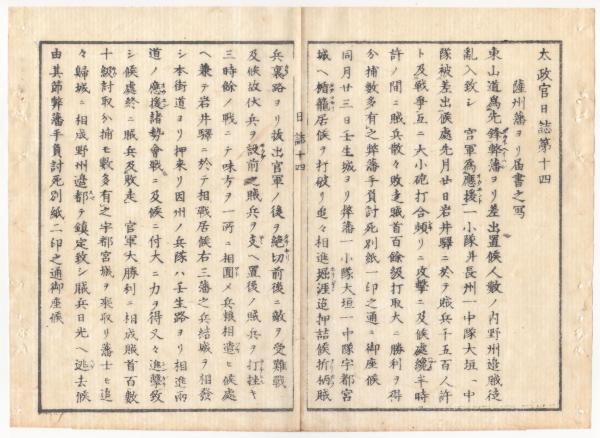 太政官日誌第十四
薩州藩ヨリ届書之写
東山道為先鋒弊藩ヨリ差出置候人数ノ内野州邉賊徒
乱入致シ 官軍為應援一小隊并長州一中隊大垣一中
隊被差出候處先月廿日岩井驛ニ於テ賊兵千五百人許
ト及戦争互ニ大小砲打合頻リニ攻撃ニ及候處纔半時
許ノ間ニ賊兵散々敗走賊首百餘級打取大ニ勝利ヲ得
分捕数多有之弊藩手負討死別紙一印之通ニ御座候
同月廿三日壬生城ヨリ弊藩一小隊大垣一中隊宇都宮
城ヘ楯籠居候ヲ打破リ追々相進堀涯迠押詰候折柄賊
日誌十四
兵裏路ヲリ抜出官軍ノ後ヲ絶切前後ニ敵ヲ受難戦
及候故伏兵ヲ設前之賊兵ヲ支ヘ置後ノ賊兵ヲ打挫キ
三時餘ノ戦ニテ味方ヲ一所ニ相圓メ兵粮相遣ヒ候處
ヘ兼テ岩井驛ニ於テ相戦居候右三藩之兵結城ヲ相發
シ本街道ヨリ押来リ因州ノ兵隊ハ壬生路ヨリ相進両
道ノ應援諸勢會戦ニ及候ニ付大ニ力ヲ得又々進撃致
シ候處終ニ賊兵及敗走 官軍大勝利ニ相成賊首百数
十級討取分捕モ数多有之宇都宮城ヲ乗取リ藩士モ追
々歸城ニ相成野州邉都テ鎮定致シ賊兵日光ヘ逃去候
由其節弊藩手負討死別紙二印之通御座候